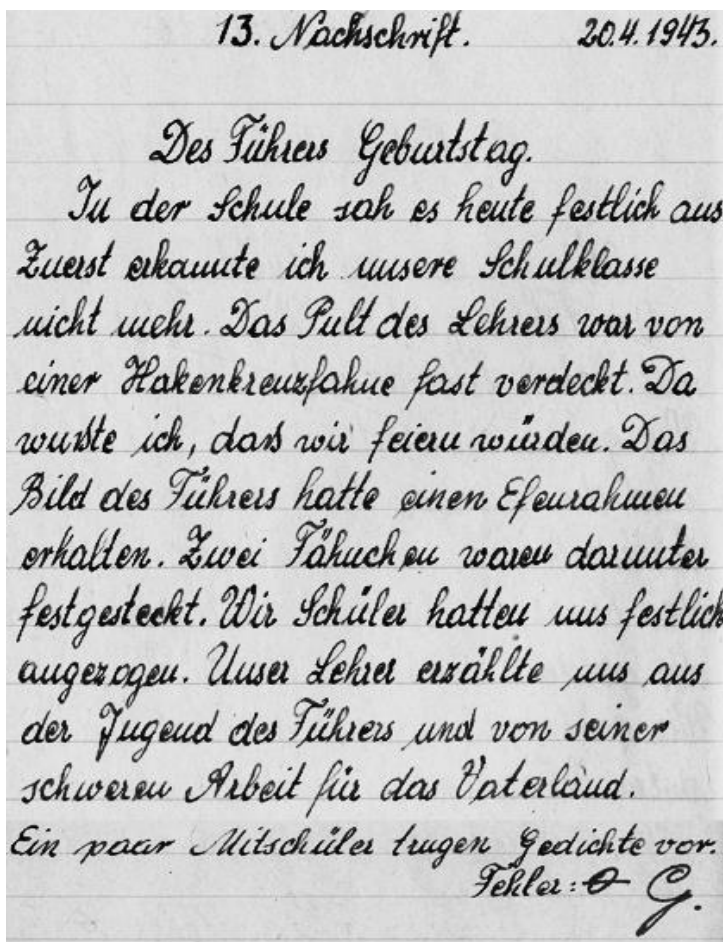 13. Nachschrift. 20.4.1943.
Des Führers Geburtstag.
In der Schule sah es heute festlich aus
Zuerst erkannte ich unsere Schulklasse
nicht mehr. Das Pult des Lehrers war von
einer Hakenkreuzfahne fast verdeckt. Da
wußte ich, daß wir feiern würden. Das
Bild des Führers hatte einen Efeurahmen
erhalten. Zwei Fähnchen waren darunter
festgesteckt. Wir Schüler hatten uns festlich
angezogen. Unser Lehrer erzählte uns aus
der Jugend des Führers und von seiner
schweren Arbeit für das Vaterland.
Ein paar Mitschüler trugen Gedichte vor.
Fehler: 0 G.